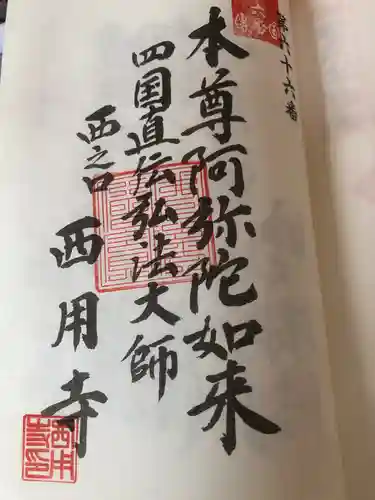 第六十六番
本尊阿弥陀如来
四国直伝弘法大師
西之口
西用寺